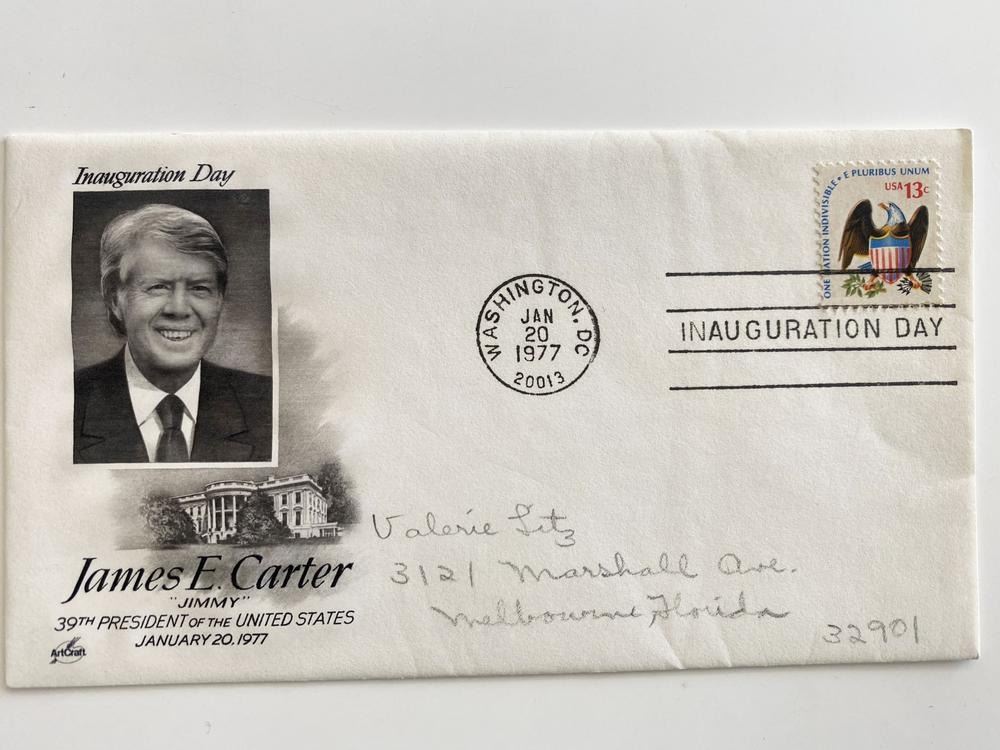 Inauguration Day
ONE NATION INDIVISIBLE • E PLURIBUS UNUM
USA 13c
WASHINGTON, DC
JAN
20
1977
20013
INAUGURATION DAY
James E. Carter
"JIMMY"
39TH PRESIDENT OF THE UNITED STATES
JANUARY 20, 1977
ArtCraft
Valerie Litz
3121 Marshall Ave.
Melbourne Florida
32901